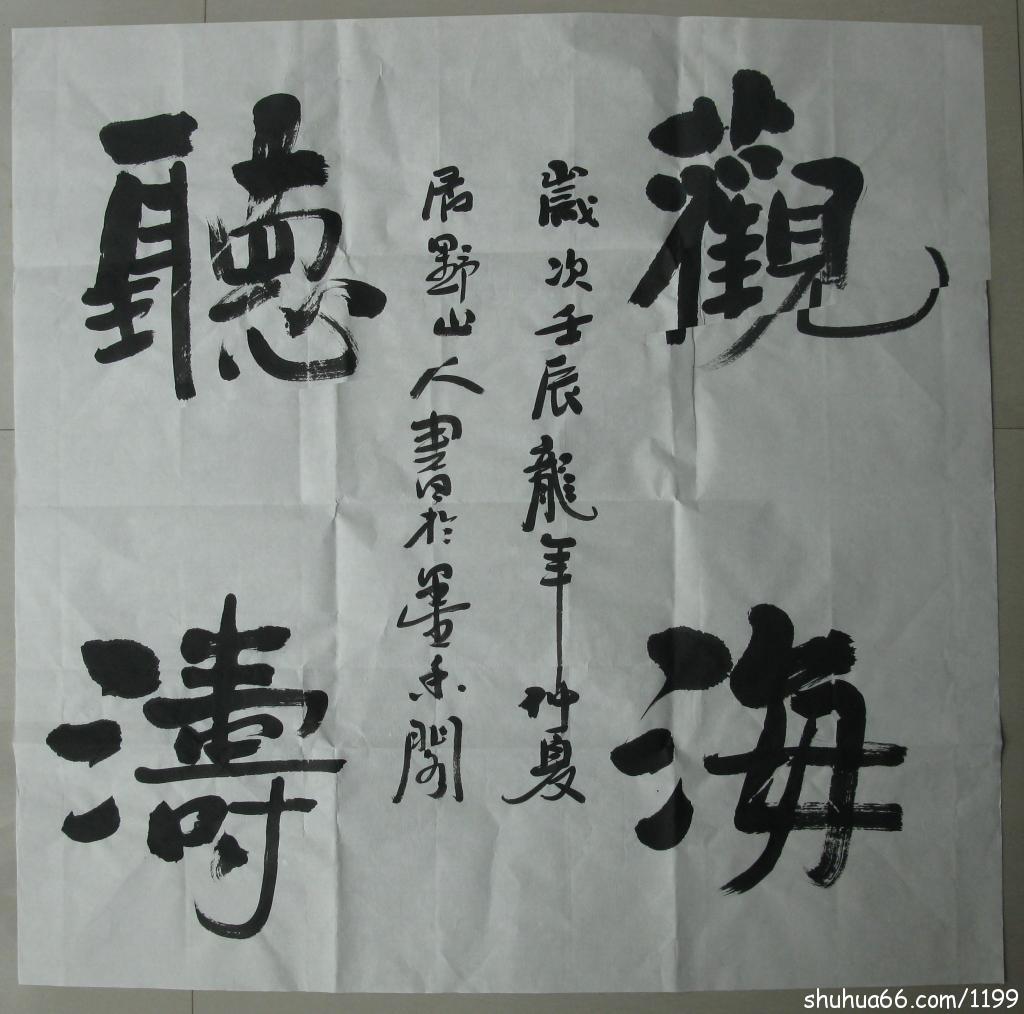 觀海
歲次壬辰龍年仲夏
居野山人書於墨香閣
聽濤
shuhua66.com/1199